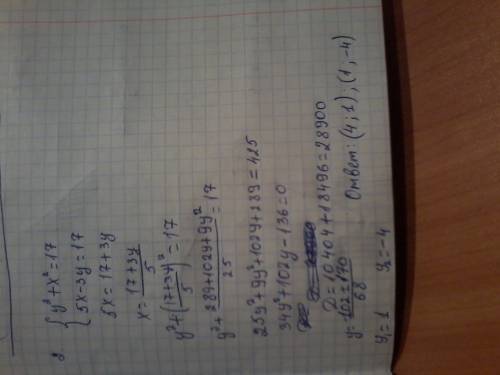 2 { y²+x²=17
5x-3y=17
5x=17+3y
x=17+3y/5
y²+(17+3y/5)²=17
y²+289+102y+9y²/25=17
25y²+9y²+102y+289=425
34y²+102y-136=0
D=10404+18496=28900
y=102±170/68
y₁=1 y₂=-4 Ответ: (4;1);(1,-4)